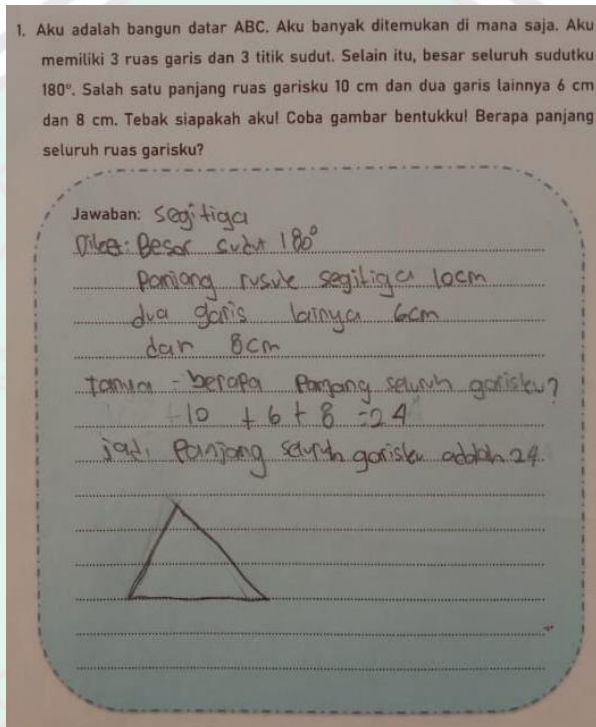 1. Aku adalah bangun datar ABC. Aku banyak ditemukan di mana saja. Aku
memiliki 3 ruas garis dan 3 titik sudut. Selain itu, besar seluruh sudutku
180°. Salah satu panjang ruas garisku 10 cm dan dua garis lainnya 6 cm
dan 8 cm. Tebak siapakah aku! Coba gambar bentukku! Berapa panjang
seluruh ruas garisku?
Jawaban: Segitiga
Diket: Besar sudut 180°
Panjang rusuk segitiga 10cm
dua garis lainya 6cm
dan 8cm
tanya - berapa Panjang seluruh garisku?
10 + 6 + 8 = 24
jadi Panjang seluruh garisku adalah 24.